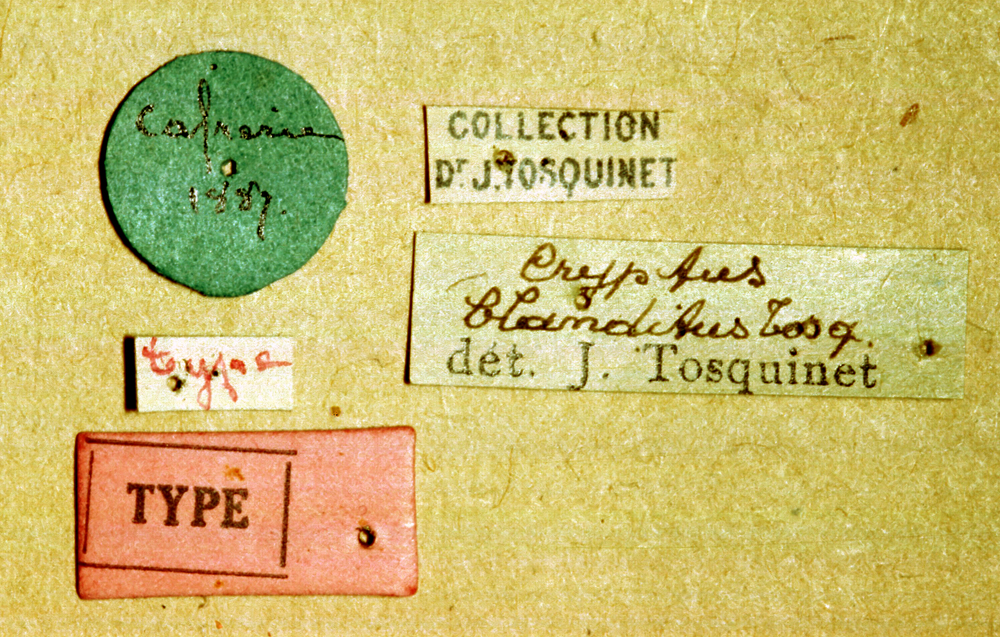 Cafrerie
1887.
COLLECTION
Dr J. TOSQUINET
Cryptus
blanditus Tosq.
dét. J. Tosquinet
type
TYPE